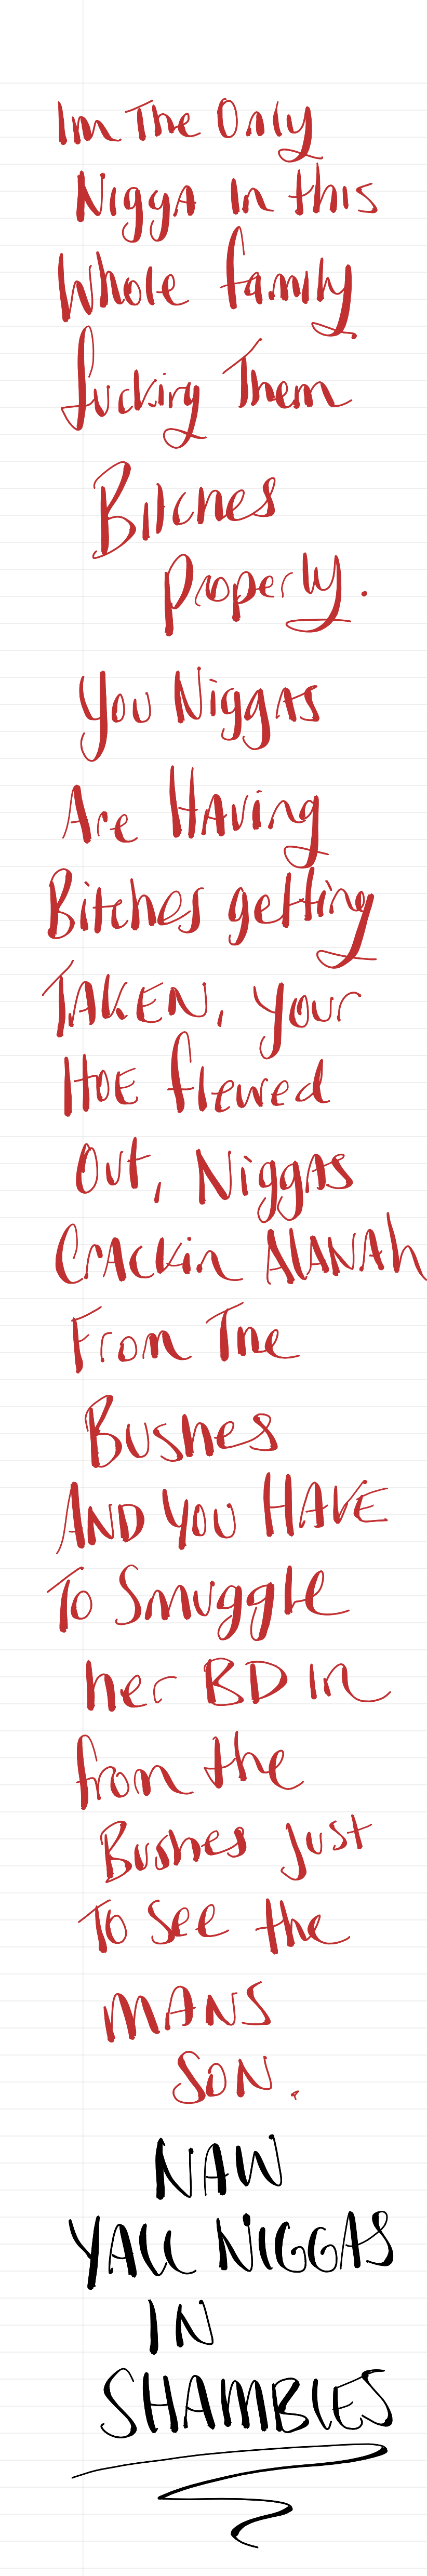 Im The Only
NiggA In this
Whole family
fucking Them
Bitches
Properly.
You NiggAs
Are HAving
Bitches getting
TAKEN, your
HOE flewed
Out, NiggAs
CrAckin AlANAh
From The
Bushes
AND YOU HAVE
To Smuggle
her BD In
from the
Bushes just
To See the
MANS
SON.
NAW
YALL NIGGAS
IN
SHAMBLES